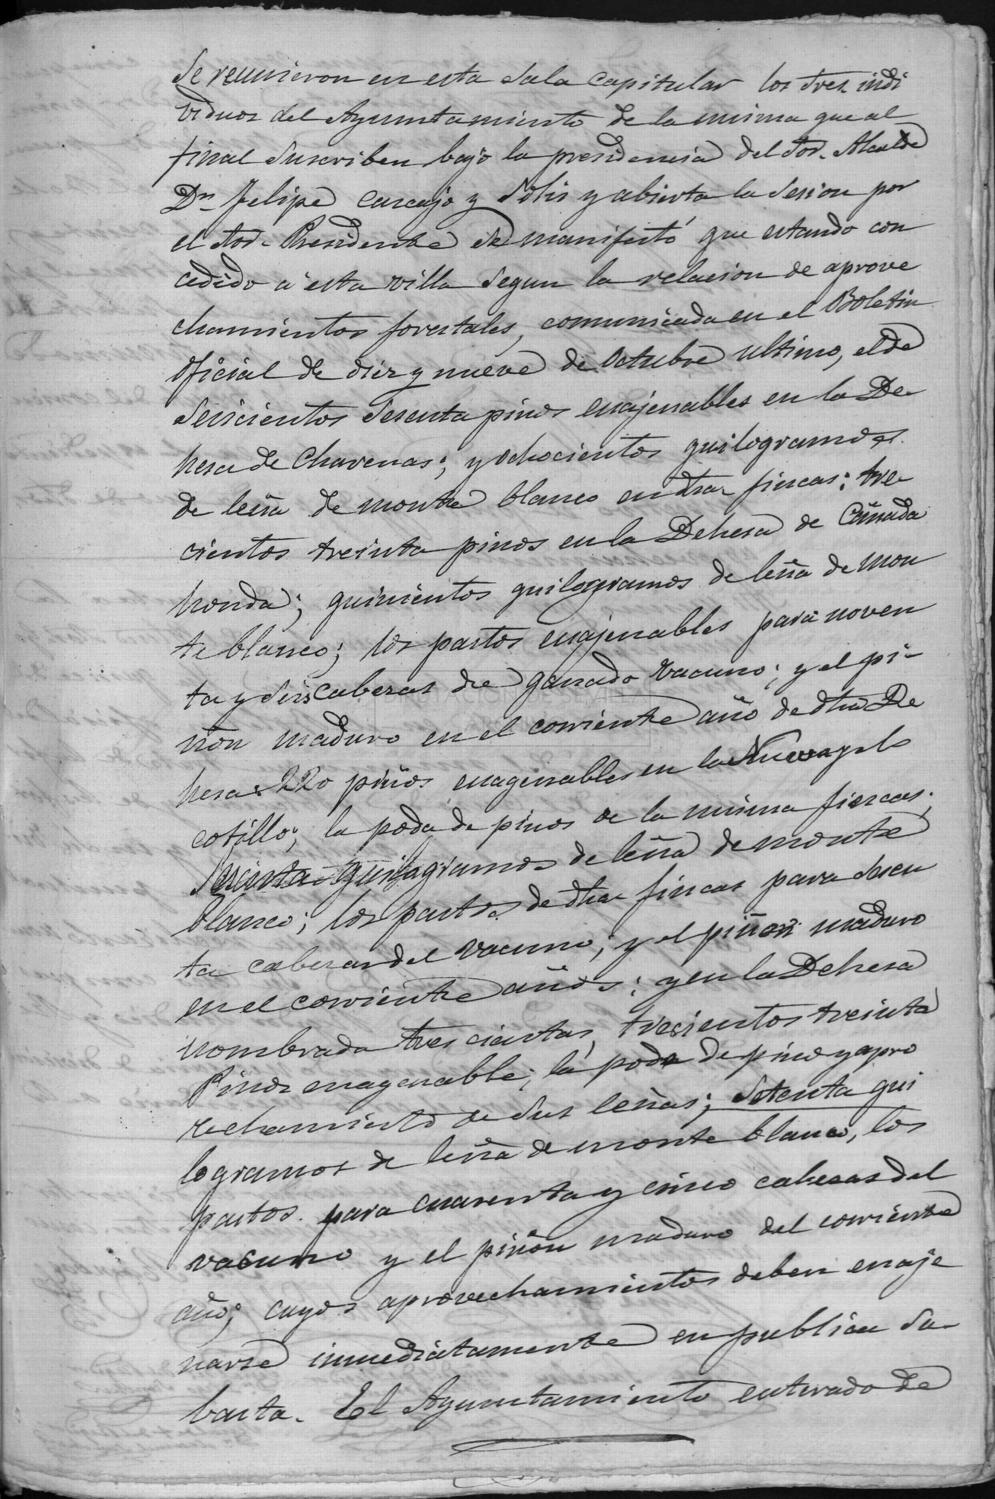 se reunieron en esta Sala Capitular los Sres. indi
viduos del Ayuntamiento de la misma que al
final suscriben bajo la presidencia del Sor. Alcalde
Dn Felipe Carcajo y Solis y abierta la sesion por
el Sor. Presidente se manifestó que estando con
cedido á esta villa segun la relacion de aprove
chamientos forestales, comunicada en el Boletin
Oficial de diez y nueve de Octubre ultimo, el de
seiscientos sesenta pinos enajenables en la De-
hesa de Chavenas; y ochocientos quilogramos
de leña de monte blanco en dhas fincas; tre-
cientos treinta pinos en la Dehesa de Cañada
honda; quinientos quilogramos de leña de mon
te blanco; los pastos enajenables para noven
ta y seis cabezas de ganado vacuno; y el pi-
ñon maduro en el corriente año de dha De
hesa 220 piños enagenables en la Nueva y lo
cotillo; la poda de pinos de la misma fincas;
quilogramos de leña de monte
blanco; los pastos de dhas fincas para sesen
ta cabezas del vacuno; y el piñon maduro
en el corriente años; y en la Dehesa
nombrada tres cientas, trescientos treinta
Pinos enagenable; la poda de pino y apro
vechamiento de sus leñas; setenta qui
logramos de leña de monte blanco, los
pastos para cuarenta y cinco cabezas del
vacuno y el piñon maduro del corriente
año; cuyos aprovechamientos deben enaje
narse inmediatamente en publica su-
basta. El Ayuntamiento enterado de